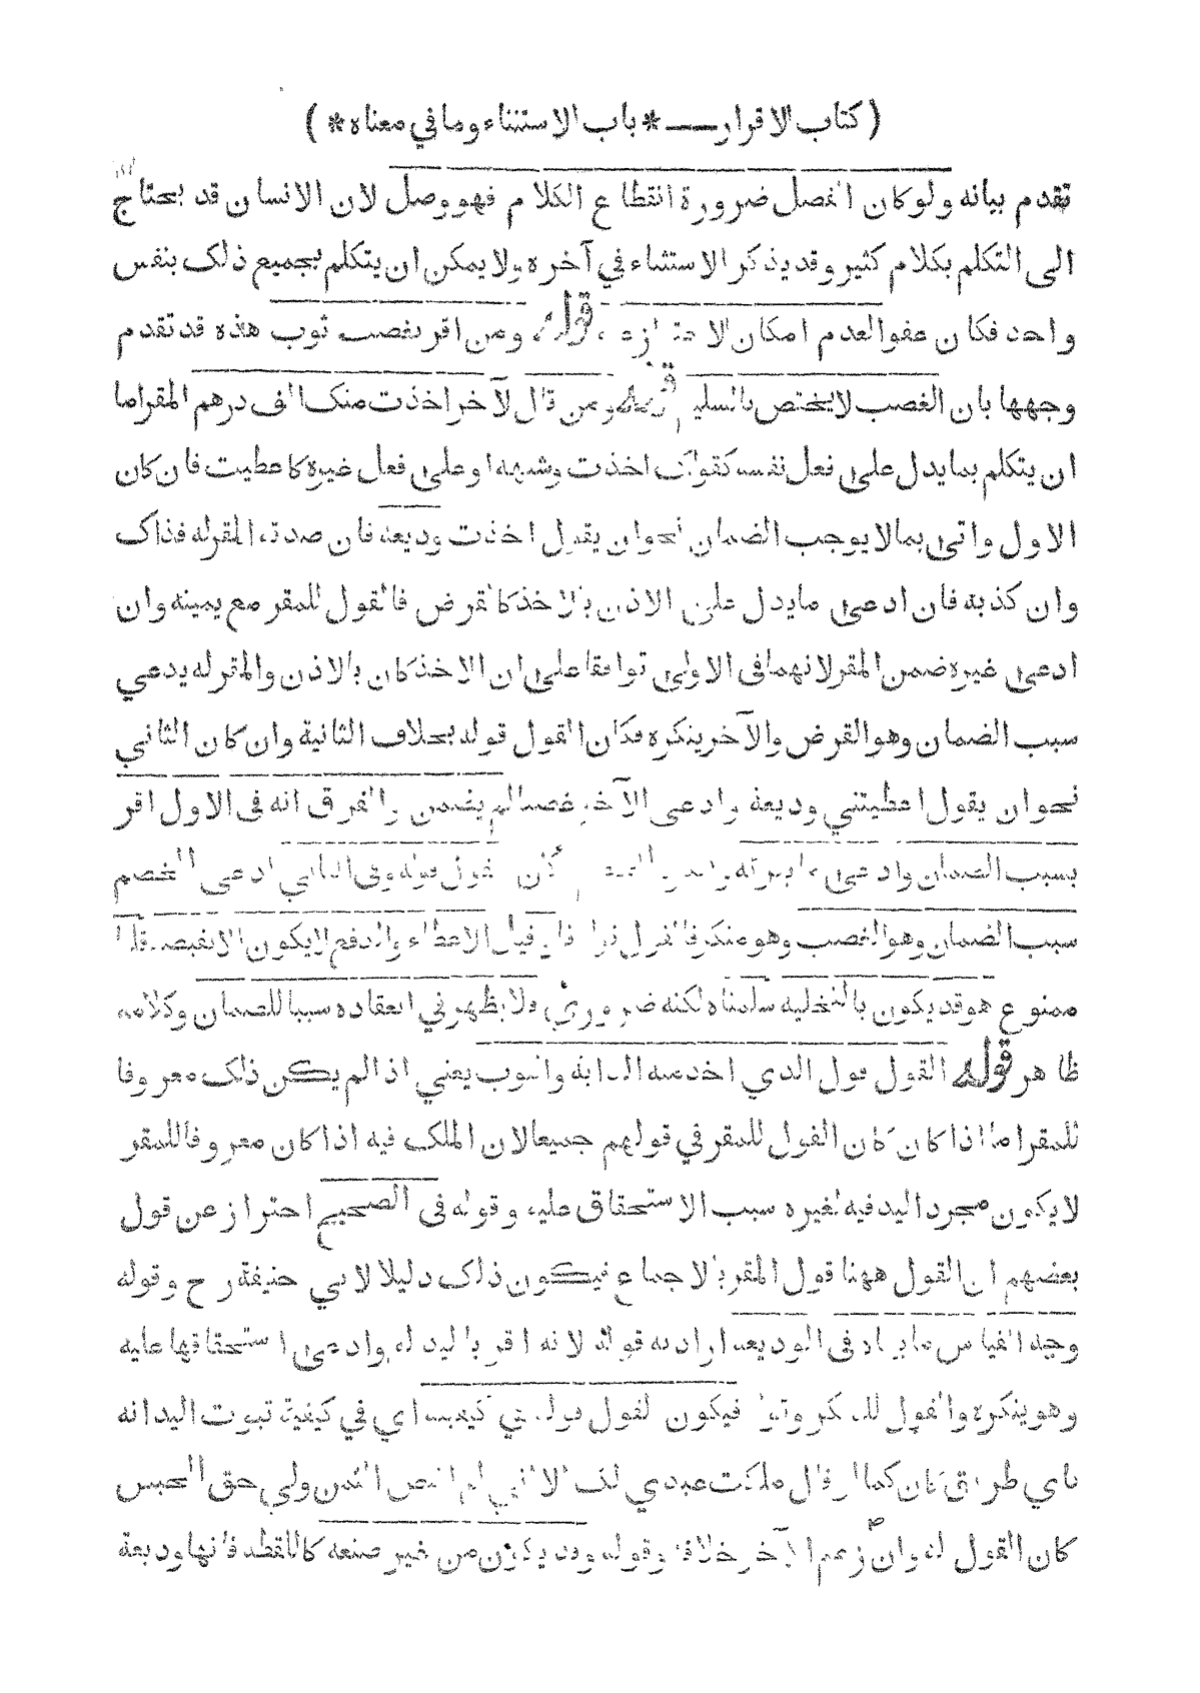 ( كتاب الاقرار — * باب الاستثناء وما في معناه * )
تقدم بيانه ولو كان الفصل ضرورة انقطاع الكلام فهو وصل لان الانسان قد يحتاج
الى التكلم بكلام كثير وقد يذكر الاستثناء في آخره ولا يمكن ان يتكلم بجميع ذلك بنفس
واحد فكان عفوا لعدم امكان الاحتراز عنه قوله ومن اقر بغصب ثوب هذه قد تقدم
وجهها بان الغصب لا يختص بالسليم قوله ومن قال لآخر اخذت منك الف درهم المقر اما
ان يتكلم بما يدل على فعل نفسه كقوله اخذت وشبهه او على فعل غيره كاعطيت فان كان
الاول واتى بما لا يوجب الضمان نحو ان يقول اخذت وديعة فان صدقه المقر له فذاك
وان كذبه فان ادعى ما يدل على الاذن بالاخذ كالقرض فالقول للمقر مع يمينه وان
ادعى غيره ضمن المقر لانهما في الاولى توافقا على ان الاخذ كان بالاذن والمقر له يدعي
سبب الضمان وهو القرض والآخر ينكره فكان القول قوله بخلاف الثانية وان كان الثاني
نحو ان يقول اعطيتني وديعة وادعى الآخر غصبا لم يضمن والفرق انه في الاول اقر
بسبب الضمان وادعى ما يبرئه والآخر القول قوله وفي الثاني ادعى الخصم
سبب الضمان وهو الغصب وهو منكر فالقول قوله فان قيل الاعطاء والدفع لا يكون الا بقبضه قلنا
ممنوع هو قد يكون بالتخلية سلمناه لكنه ضروري فلا يظهر في انعقاده سببا للضمان وكلامه
ظاهر قوله القول قول الذي اخذ منه الدابة والثوب يعني اذا لم يكن ذلك معروفا
للمقر اما اذا كان كان القول للمقر في قولهم جميعا لان الملك فيه اذا كان معروفا للمقر
لا يكون مجرد اليد فيه لغيره سبب الاستحقاق عليه وقوله في الصحيح احتراز عن قول
بعضهم ان القول ههنا قول المقر بالاجماع فيكون ذلك دليلا لابي حنيفة رح وقوله
وجه القياس ما بيناه في الوديعة اراد به قوله لانه اقر باليد له وادعى استحقاقها عليه
وهو ينكره والقول للمنكر وقوله فيكون القول قوله في كيفيته اي في كيفية ثبوت اليد انه
باي طريق كان كما لو قال ملكت عبدي لك الا اني لم اقبض الثمن ولي حق الحبس
كان القول له وان زعم الآخر خلافه وقوله وقد يكون من غير صنعه كاللقطة فانها وديعة